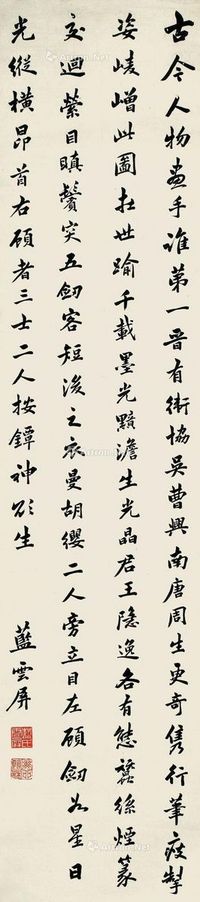 古今人物畫手誰第一晉有衛協吳曹興南唐周生更奇雋行筆疾掣
姿崚嶒此圖在世踰千載墨光黯澹生光晶君王隱逸各有態蠶絲煙篆
交迴縈目瞋鬢突五劍客短後之衣曼胡纓二人旁立目左顧劍如星日
光縱橫昂首右顧者三士二人按鐔神欲生
藍雲屏